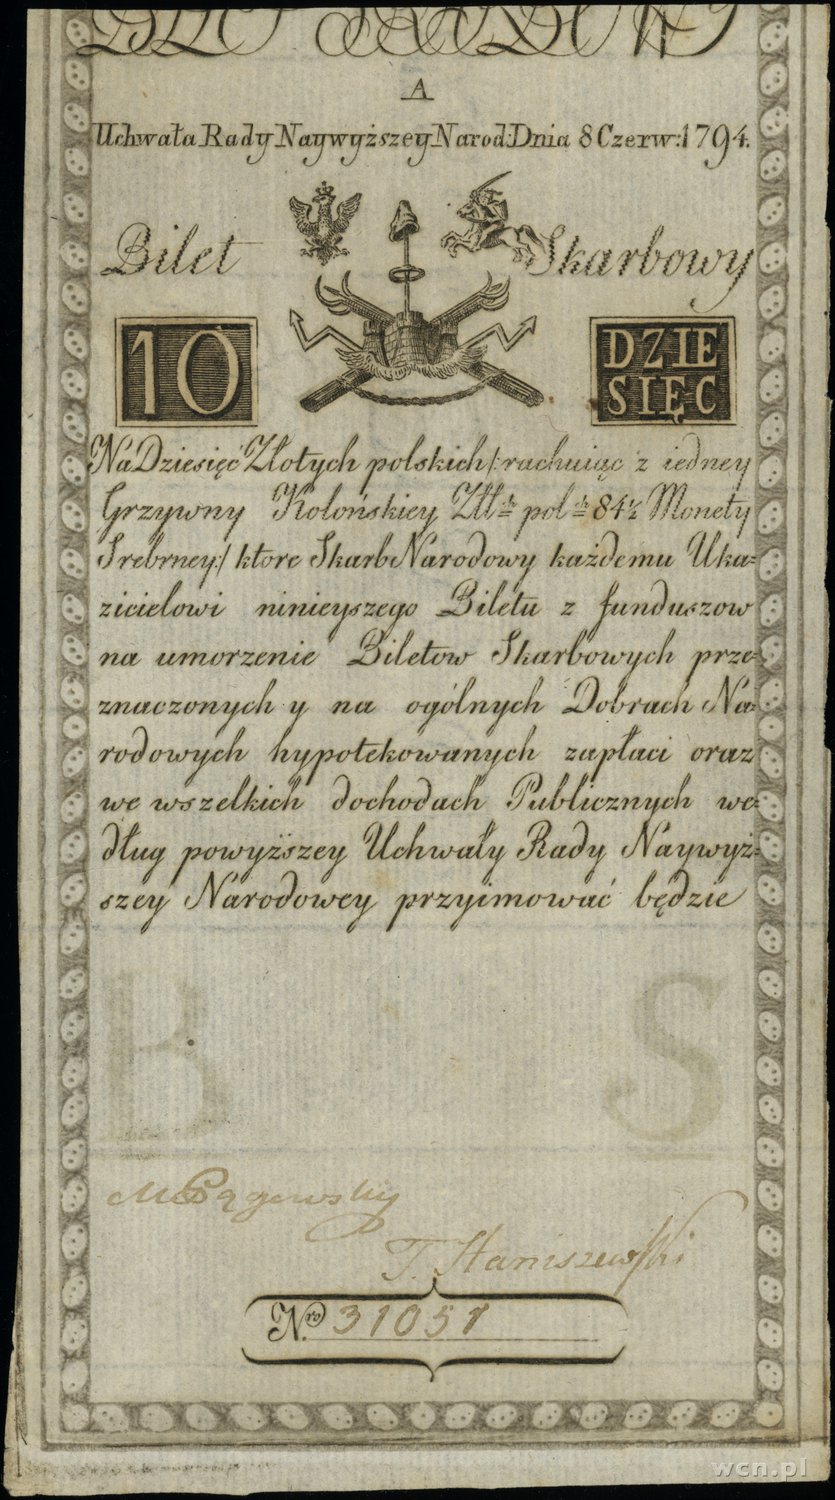 A
Uchwała Rady Naywyższey Narod: Dnia 8 Czerw: 1794.
Bilet Skarbowy
10 DZIE
SIĘC
Na Dziesięć Złotych polskich /: rachuiąc z iedney
Grzywny Kolońskiey Złł:ch pol:ch 84½ Monety
Srebrney :/ ktore Skarb Narodowy każdemu Uka=
zicielowi ninieyszego Biletu z funduszow
na umorzenie Biletow Skarbowych prze=
znaczonych y na ogólnych Dobrach Na=
rodowych hypotekowanych zapłaci oraz
we wszelkich dochodach Publicznych we=
dług powyższey Uchwały Rady Naywyż=
szey Narodowey przyimować będzie
B S
T. Staniszewski
Nro 31051
wcn.pl